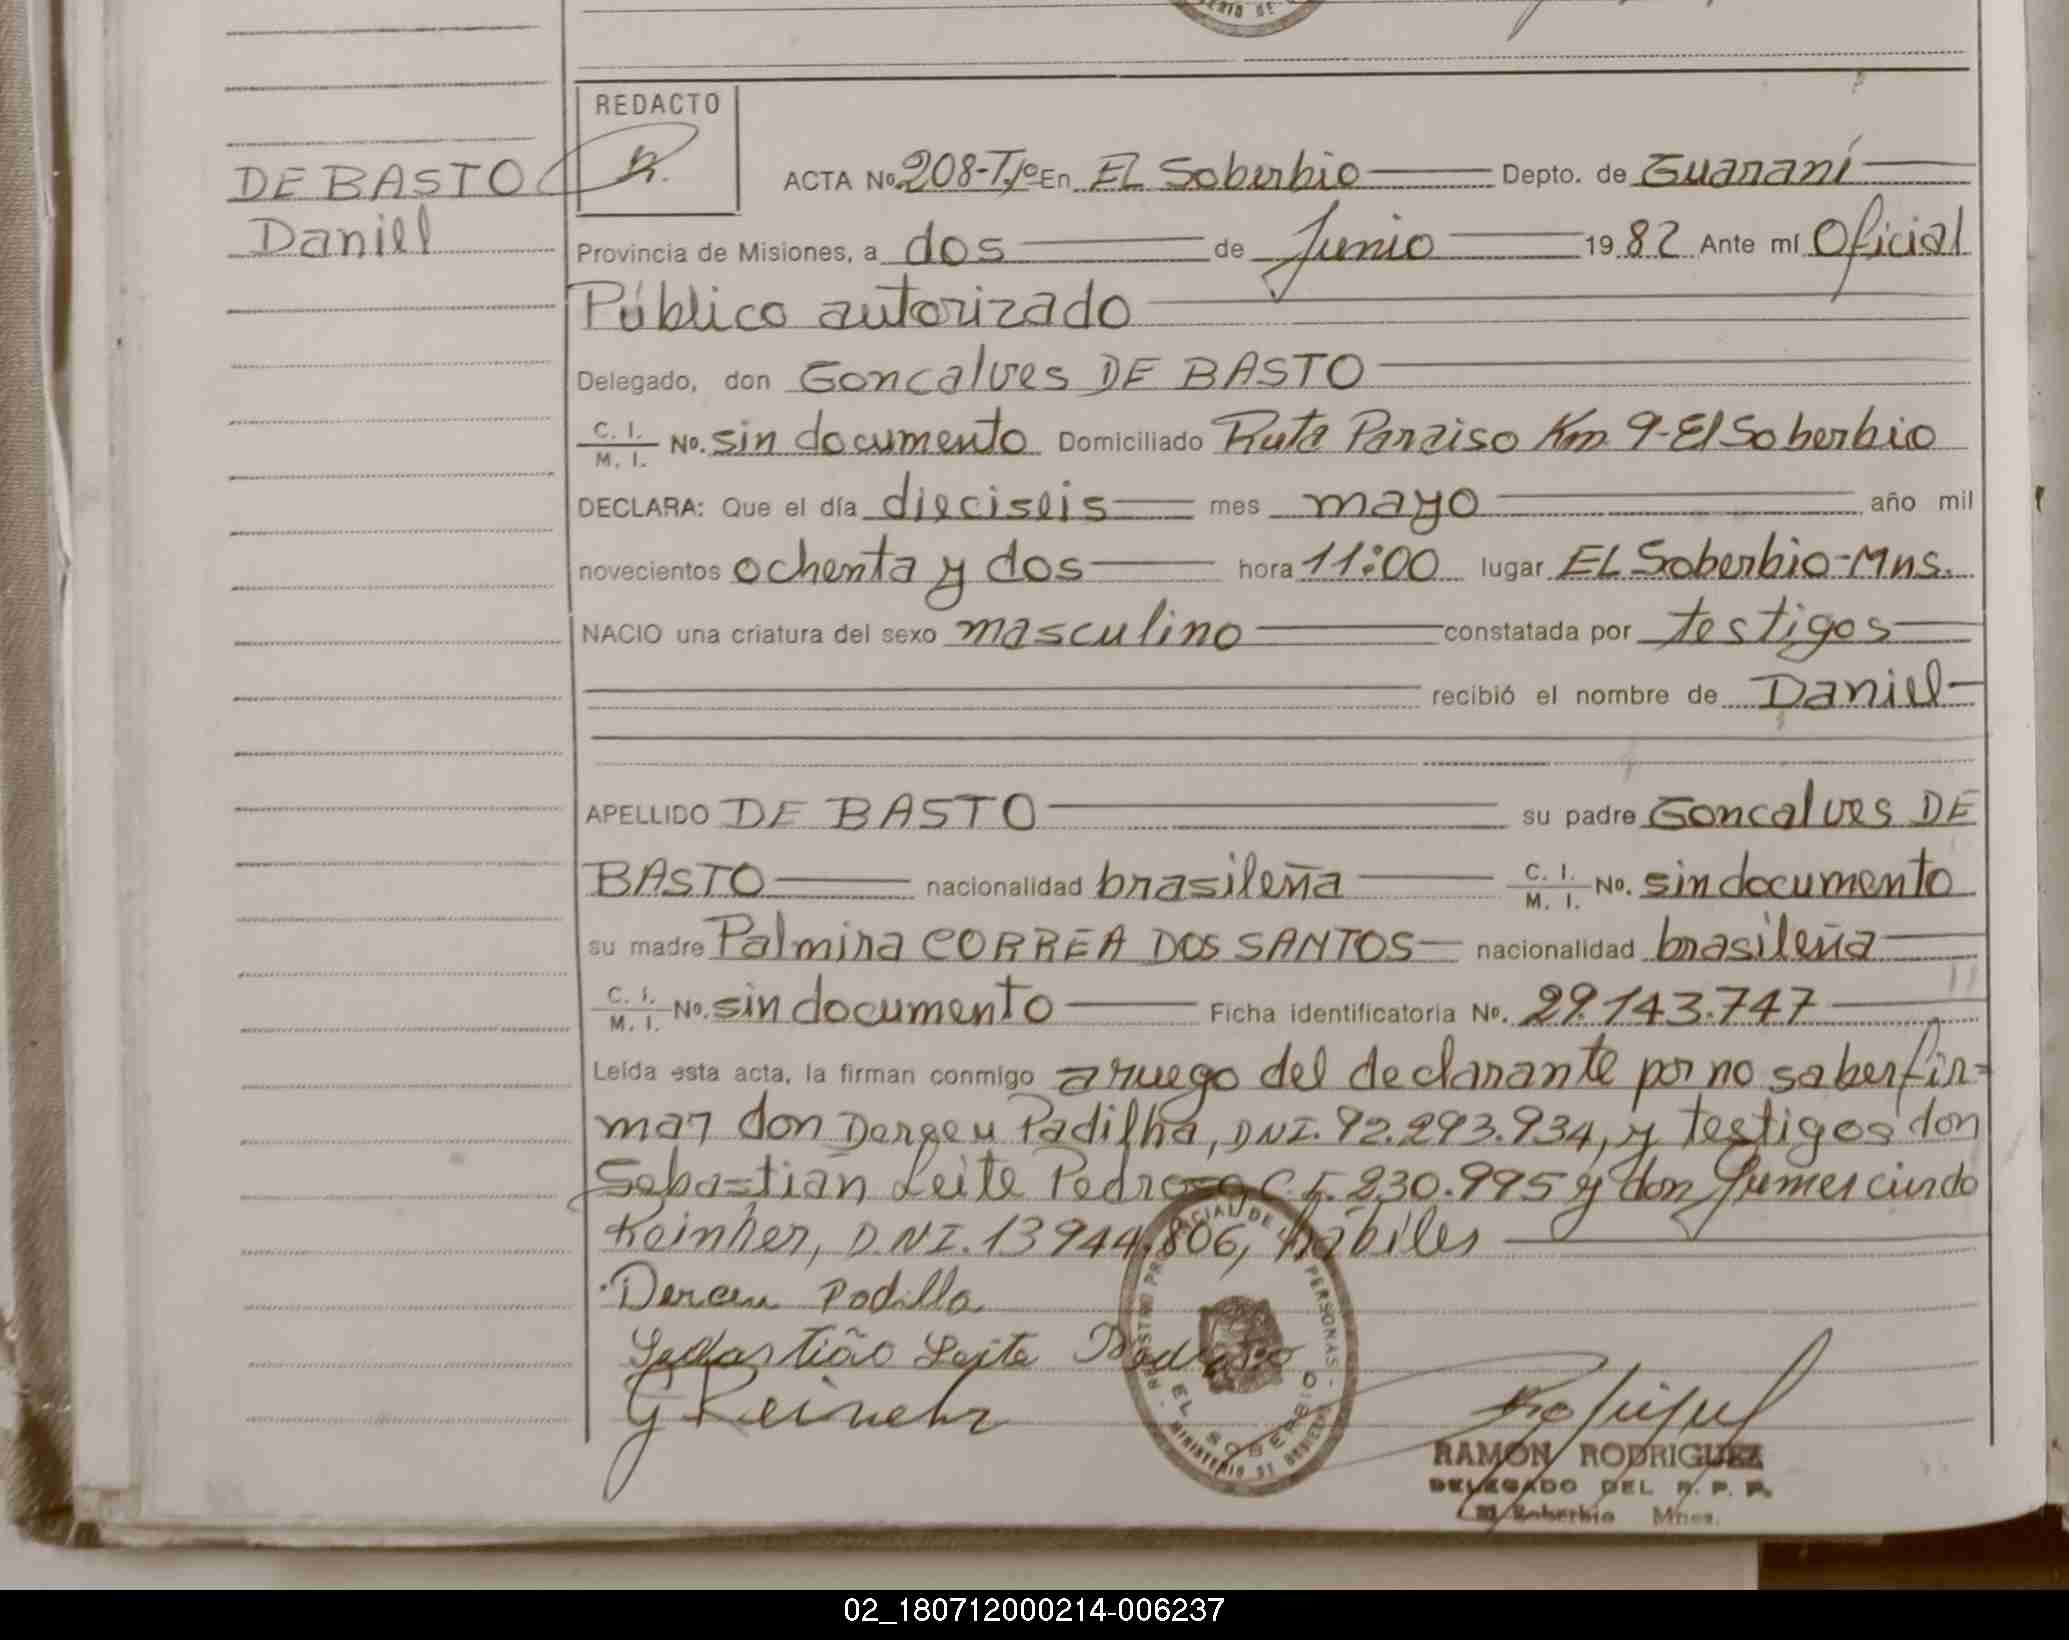 DE BASTO
Daniel
REDACTO
ACTA No. 208-Tº1º En EL Soberbio Depto. de Guaraní
Provincia de Misiones, a dos de Junio 1982 Ante mí Oficial
Público autorizado
Delegado, don Goncalves DE BASTO
C. I. / M. I. No. sin documento Domiciliado Ruta Paraiso Km 9-El Soberbio
DECLARA: Que el día dieciseis mes mayo año mil
novecientos ochenta y dos hora 11:00 lugar EL Soberbio-Mns.
NACIO una criatura del sexo masculino constatada por testigos
recibió el nombre de Daniel
APELLIDO DE BASTO su padre Goncalves DE
BASTO nacionalidad brasileña C. I. / M. I. No. sin documento
su madre Palmira CORREA DOS SANTOS nacionalidad brasileña
C. I. / M. I. No. sin documento Ficha identificatoria No. 29.143.747
Leída esta acta, la firman conmigo a ruego del declarante por no saber fir-
mar don Derceu Padilha, DNI. 92.293.934, y testigos don
Sebastián Leite Pedroso C.I. 230.995 y don Gumercindo
Reinher, D.N.I. 13944.806, hábiles
Derceu Padilla
Sebastião Leite Pedroso
G Reinehr
REGISTRO PROVINCIAL DE LAS PERSONAS
EL SOBERBIO
MINISTERIO DE GOBIERNO
RAMON RODRIGUEZ
DELEGADO DEL R. P. P.
El Soberbio Mnes.
02_180712000214-006237